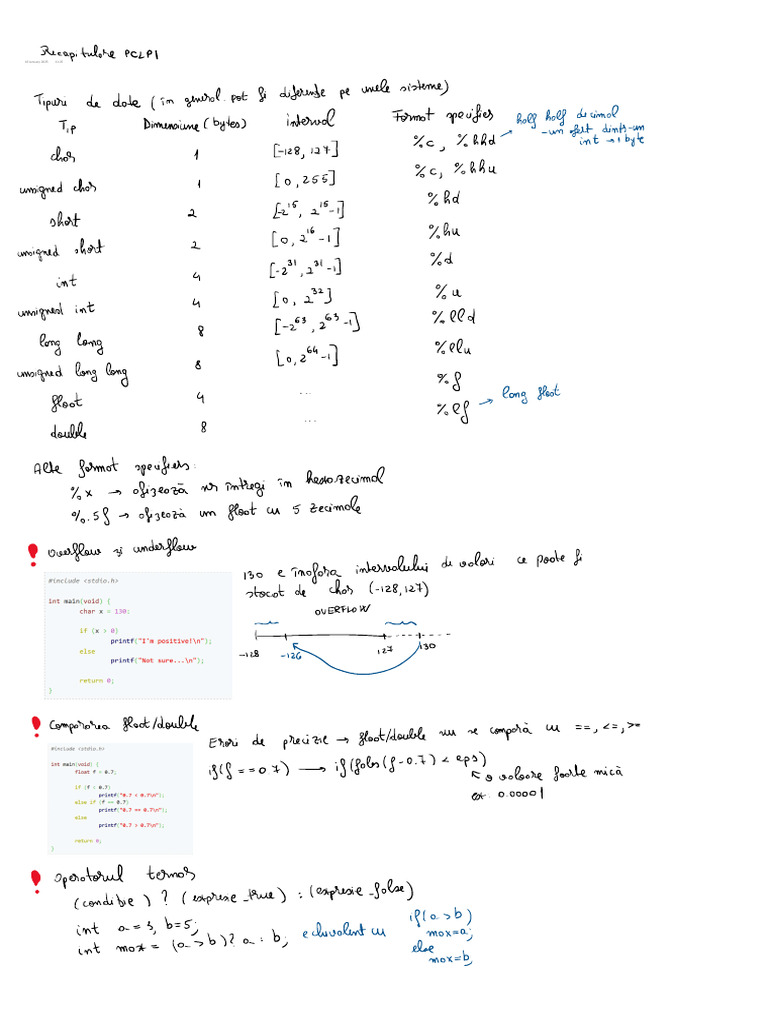 Recapitulare PCLP1
Tipuri de date (în general. pot fi diferențe pe unele sisteme)
Tip Dimensiune (bytes) interval Format specifiers
char 1 [-128, 127] %c, %hhd → half half decimal
-un sfert dintr-un
int → 1 byte
unsigned char 1 [0, 255] %c, %hhu
short 2 [-2^15, 2^15-1] %hd
unsigned short 2 [0, 2^16-1] %hu
int 4 [-2^31, 2^31-1] %d
unsigned int 4 [0, 2^32] %u
long long 8 [-2^63, 2^63-1] %lld
unsigned long long 8 [0, 2^64-1] %llu
float 4 ... %f
double 8 ... %lf → long float
Alte format specifiers:
%x → afizează nr întregi în hexazecimal
%.5f → afizează un float cu 5 zecimale
! Overflow și underflow
#include <stdio.h>
int main(void) {
char x = 130;
if (x > 0)
printf("I'm positive!\n");
else
printf("Not sure...\n");
return 0;
}
130 e înafara intervalului de valori ce poate fi
stocat de char (-128,127)
OVERFLOW
-128 -126 127 130
! Compararea float/double
#include <stdio.h>
int main(void) {
float f = 0.7;
if (f < 0.7)
printf("0.7 < 0.7\n");
else if (f == 0.7)
printf("0.7 == 0.7\n");
else
printf("0.7 > 0.7\n");
return 0;
}
Erori de precizie → float/double nu se compară cu ==, <=, >=
if(f == 0.7) → if(fabs(f-0.7) < eps)
o valoare foarte mică
ex. 0.00001
! Operatorul ternar
(condiție) ? (expresie_true) : (expresie_false)
int a = 3, b=5;
int max = (a > b)? a : b; echivalent cu
if(a > b)
max=a;
else
max=b;